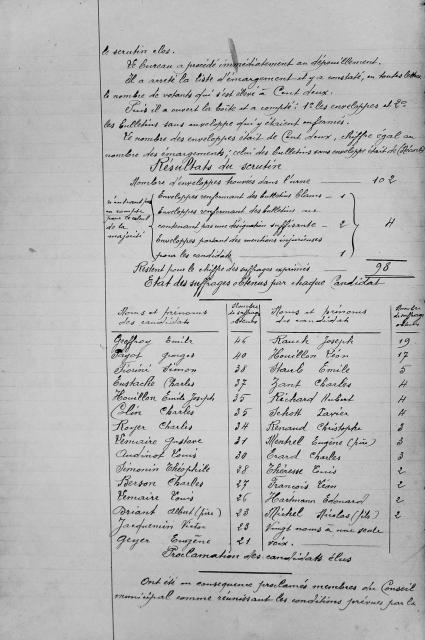 le scrutin clos.
Le bureau a procédé immédiatement au dépouillement.
Il a arrêté la liste d'émargement et y a constaté, en toutes lettres
le nombre de votants qui s'est élevé à Cent deux.
Puis il a ouvert la boîte et a compté: 1° les enveloppes et 2°
les bulletins sans enveloppe qui y étaient enfermés.
Le nombre des enveloppes était de Cent deux, chiffre égal au
nombre des émargements; celui des bulletins sans enveloppe était de (Néant)
Résultats du scrutin
Nombre d'enveloppes trouvées dans l'urne 102
n'entrant pas
en compte
pour le calcul
de la
majorité
Enveloppes renfermant des bulletins blancs - 1
Enveloppes renfermant des bulletins ne
contenant pas une désignation suffisante - 2
Enveloppes portant des mentions injurieuses
pour les candidats 1
4
Restent pour le chiffre des suffrages exprimés 98
Etat des suffrages obtenus par chaque Candidat
Noms et prénoms des candidats Nombre de suffrages obtenus Noms et prénoms des candidats Nombre de suffrages obtenus
Geoffroy Emile 46 Rauch Joseph 19
Sayot Georges 40 Houillon Léon 17
Simon 38 Staub Emile 5
Eustache Charles 37 Zant Charles 4
Houillon Emile Joseph 35 Richard Hubert 4
Colin Charles 35 Schott Xavier 4
Royer Charles 34 Renaud Christophe 3
Lemaire Gustave 31 Menkel Eugène (père) 3
Audinot Louis 30 Erard Charles 3
Simonin Théophile 28 Thérèse Louis 2
Berson Charles 27 François Léon 2
Lemaire Louis 26 Hartmann Edouard 2
Briant Albert (père) 23 Michel Nicolas (fils) 2
Jacquemin Victor 23 Vingt noms à une seule
Geyer Eugène 21 voix.
Proclamation des candidats élus
Ont été en conséquence proclamés membres du Conseil
municipal comme réunissant les conditions prévues par la